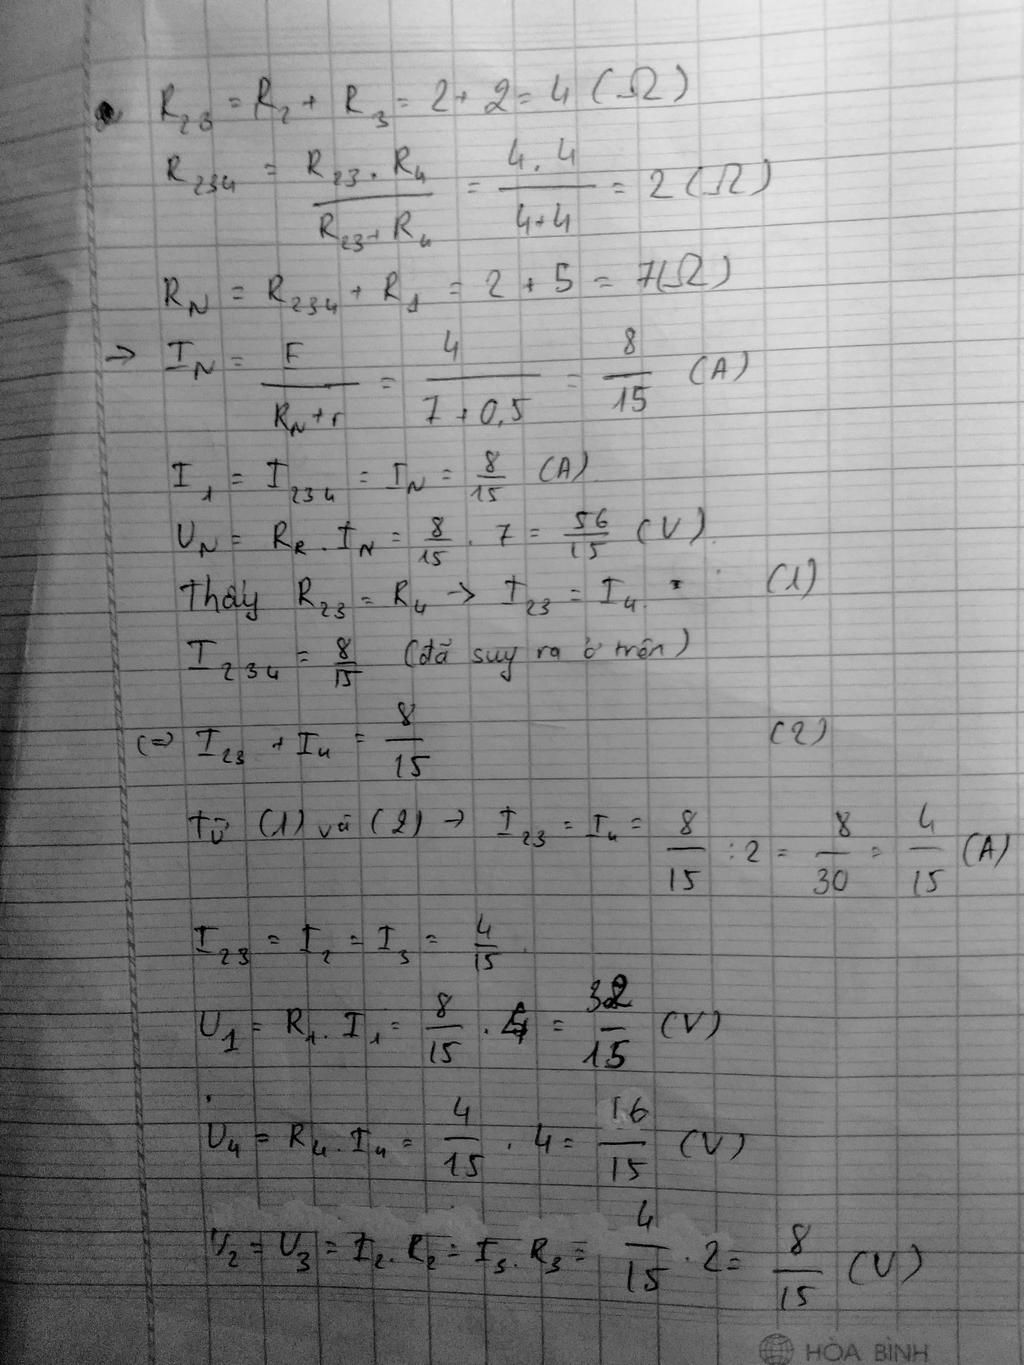 R₂₃ = R₂ + R₃ = 2 + 2 = 4 (Ω)
R₂₃₄ = (R₂₃ . R₄)/(R₂₃ + R₄) = (4 . 4)/(4+4) = 2 (Ω)
R_N = R₂₃₄ + R₁ = 2 + 5 = 7(Ω)
→ I_N = E/(R_N + r) = 4/(7 + 0,5) = 8/15 (A)
I₁ = I₂₃₄ = I_N = 8/15 (A)
U_N = R_R . I_N = 8/15 . 7 = 56/15 (V)
Thấy R₂₃ = R₄ → I₂₃ = I₄ (1)
I₂₃₄ = 8/15 (đã suy ra ở trên)
(=> I₂₃ + I₄ = 8/15 (2)
Từ (1) và (2) → I₂₃ = I₄ = 8/15 : 2 = 8/30 = 4/15 (A)
I₂₃ = I₂ = I₃ = 4/15
U₁ = R₁ . I₁ = 8/15 . = 32/15 (V)
U₄ = R₄ . I₄ = 4/15 . 4 = 16/15 (V)
U₂ = U₃ = I₂ . R₂ = I₃ . R₃ = 4/15 . 2 = 8/15 (V)
HÒA BÌNH